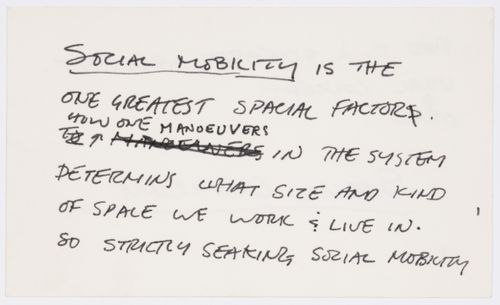 SOCIAL MOBILITY IS THE
ONE GREATEST SPACIAL FACTORS.
HOW ONE MANOEUVERS
IN THE SYSTEM
DETERMINS WHAT SIZE AND KIND
OF SPACE WE WORK & LIVE IN.
SO STRICTLY SEAKING SOCIAL MOBILITY